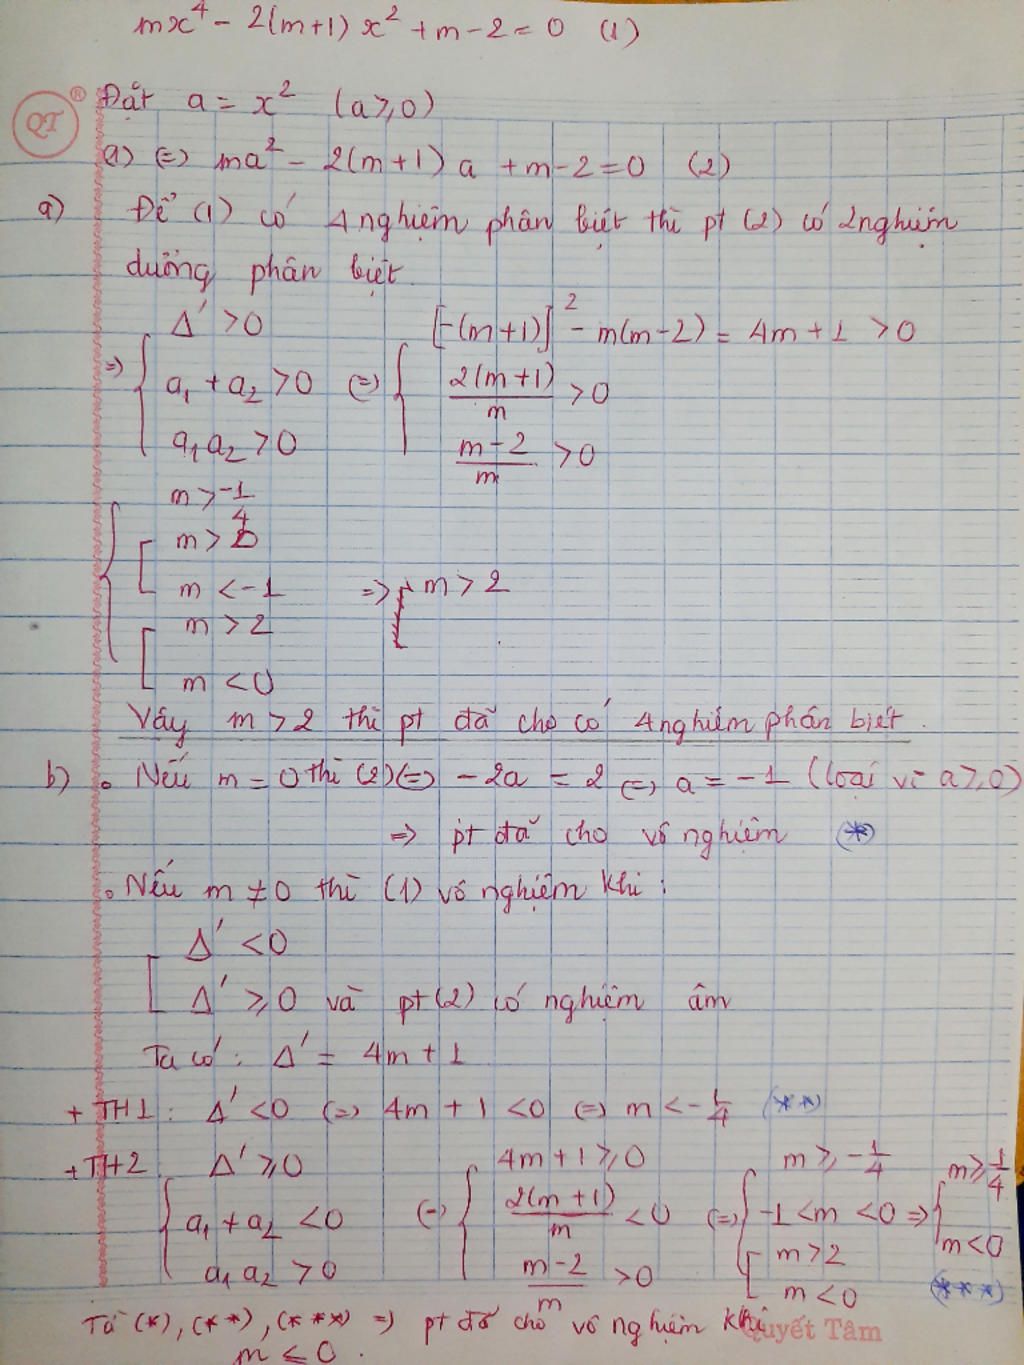 mx⁴ - 2(m+1)x² + m-2 = 0 (1)
QT ®
Đặt a = x² (a ⩾ 0)
(1) (=) ma² - 2(m+1)a + m-2 = 0 (2)
a) Để (1) có 4 nghiệm phân biệt thì pt (2) có 2 nghiệm
dương phân biệt
=) { Δ' > 0 (=) { [-(m+1)]² - m(m-2) = 4m + 1 > 0
a₁ + a₂ > 0 2(m+1)/m > 0
a₁a₂ > 0 m-2/m > 0
{ m > -1/4
[ m > 0
m < -1 => m > 2
[ m > 2
m < 0
Vậy m > 2 thì pt đã cho có 4 nghiệm phân biệt.
b) • Nếu m = 0 thì (2) (=) -2a = 2 (=) a = -1 (loại vì a ⩾ 0)
=> pt đã cho vô nghiệm (*)
• Nếu m ≠ 0 thì (1) vô nghiệm khi:
[ Δ' < 0
Δ' ⩾ 0 và pt (2) có nghiệm âm
Ta có: Δ' = 4m + 1
+ TH1: Δ' < 0 (=) 4m + 1 < 0 (=) m < -1/4 (**)
+ TH2 { Δ' ⩾ 0 (=) { 4m + 1 ⩾ 0 (=) { m ⩾ -1/4 => { m ⩾ 1/4
a₁ + a₂ < 0 2(m+1)/m < 0 -1 < m < 0 m < 0
a₁a₂ > 0 m-2/m > 0 [ m > 2
m < 0 (***)
Từ (*), (**), (***) => pt đã cho vô nghiệm khi
Quyết Tâm
m ⩽ 0.